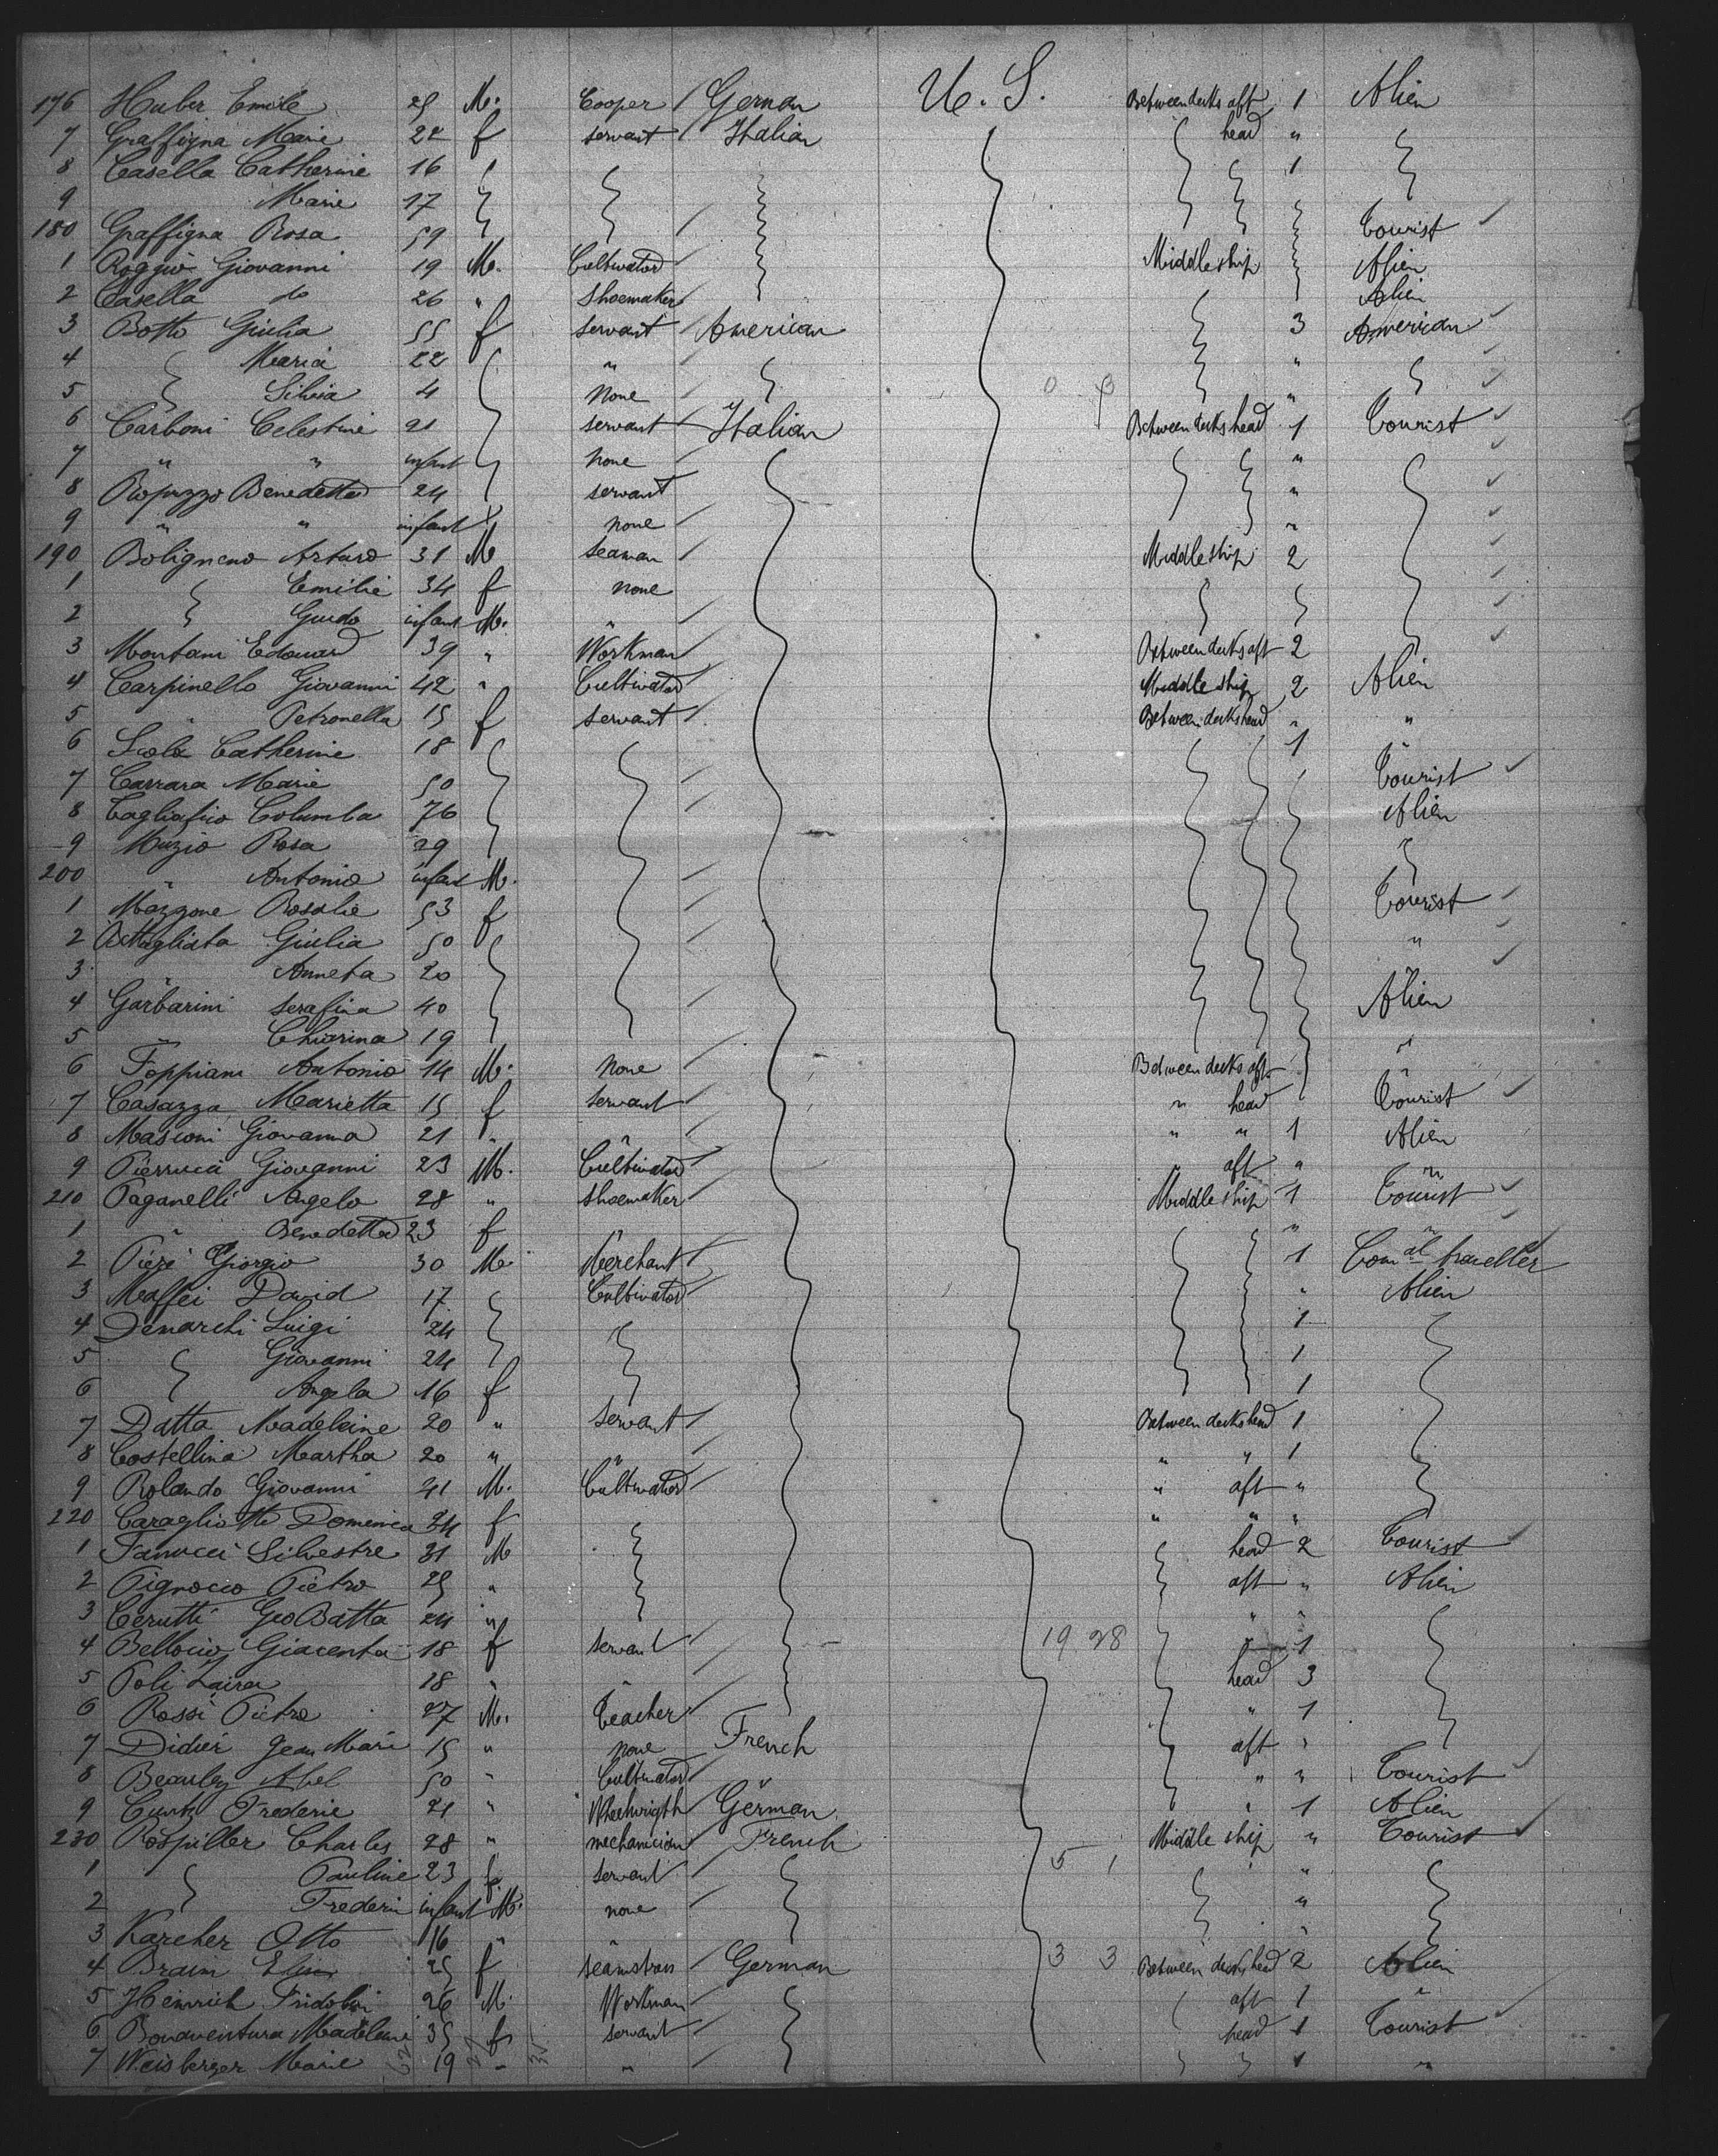 176 Huber Emile 25 M. Cooper / German U. S. Between decks aft 1 Alien
7 Graffigna Marie 22 f servant / Italian head "
8 Casella Catherine 16 1
9 Marie 17
180 Graffigna Rosa 59 / Tourist ✓
1 Roggio Giovanni 19 M. Cultivator / Middle ship Alien
2 Casella do 26 " Shoemaker / Alien
3 Botto Giulia 55 f servant / American 3 American ✓
4 Maria 22 " / " ✓
5 Silvia 4 none / " ✓
6 Carboni Celestine 21 servant Italian Between decks head 1 Tourist ✓
7 " " infant none / " ✓
8 Benedetta 24 servant / " ✓
9 " " infant none / " ✓
190 Arturo 31 M seaman / Middle ship 2 ✓
1 Emilie 34 f none / ✓
2 Guido infant M. " / ✓
3 Montani Edouard 39 " Workman / Between decks aft 2 ✓
4 Carpinello Giovanni 42 " Cultivator / Middle ship 2 Alien
5 " Petronella 15 f servant / Between decks head " "
6 Catherine 18 1
7 Carrara Marie 50 / Tourist ✓
8 Columba 76 / Alien
9 Muzio Rosa 29 / "
200 " Antonio infant M. /
1 Mazzone Rosalie 53 f / Tourist ✓
2 Giulia 50 / " ✓
3 " Anneta 20 / ✓
4 Garbarini Serafina 40 / Alien
5 " Chiarina 19 "
6 Foppiani Antonio 14 M. none / Between decks aft "
7 Casazza Marietta 15 f servant / " head Tourist ✓
8 Masconi Giovanna 21 " " / " " 1 Alien
9 Pierrucci Giovanni 23 M. Cultivator / aft " "
210 Paganelli Angelo 28 " shoemaker / Middle ship 1 Tourist ✓
1 " Benedetta 23 f " / " " ✓
2 Pieri Giorgio 30 M. Merchant / 1 Com.al traveller
3 Maffei David 17 Cultivator / " Alien
4 Demarchi Luigi 24 1
5 Giovanni 24 1
6 Angela 16 f 1
7 Datta Madeleine 20 " Servant / Between decks head 1
8 Costellina Martha 20 " " / " " 1
9 Rolando Giovanni 41 M. Cultivator / " aft "
220 Domenica 24 f " " "
1 Fanucci Silvestre 31 M head 2 Tourist ✓
2 Pietro 25 " aft " Alien
3 Cerutti Gio Batta 24 " " "
4 Giacenta 18 f servant / 19 28 " 1
5 Poli 18 " " / head 3
6 Rossi Pietro 27 M. Teacher / " 1
7 Didier Jean Marie 15 " none French aft "
8 Abel 50 " Cultivator / " " " Tourist ✓
9 Frederic 21 " Wheelwrigth / German " 1 Alien
230 Rospiller Charles 28 " mechanician / French Middle ship " Tourist ✓
1 Pauline 23 f. servant / 5 1 "
2 Frederic infant M. none / "
3 Karcher Otto 16 " "
4 Braun 25 f seamstress / German 3 3 Between decks head 2 Alien
5 Heinrich Fridolin 26 M. Workman / aft 1 "
6 Bonaventura Madeleine 35 f servant / head 1 Tourist ✓
7 Weisberger Marie 19 " " / 1 "